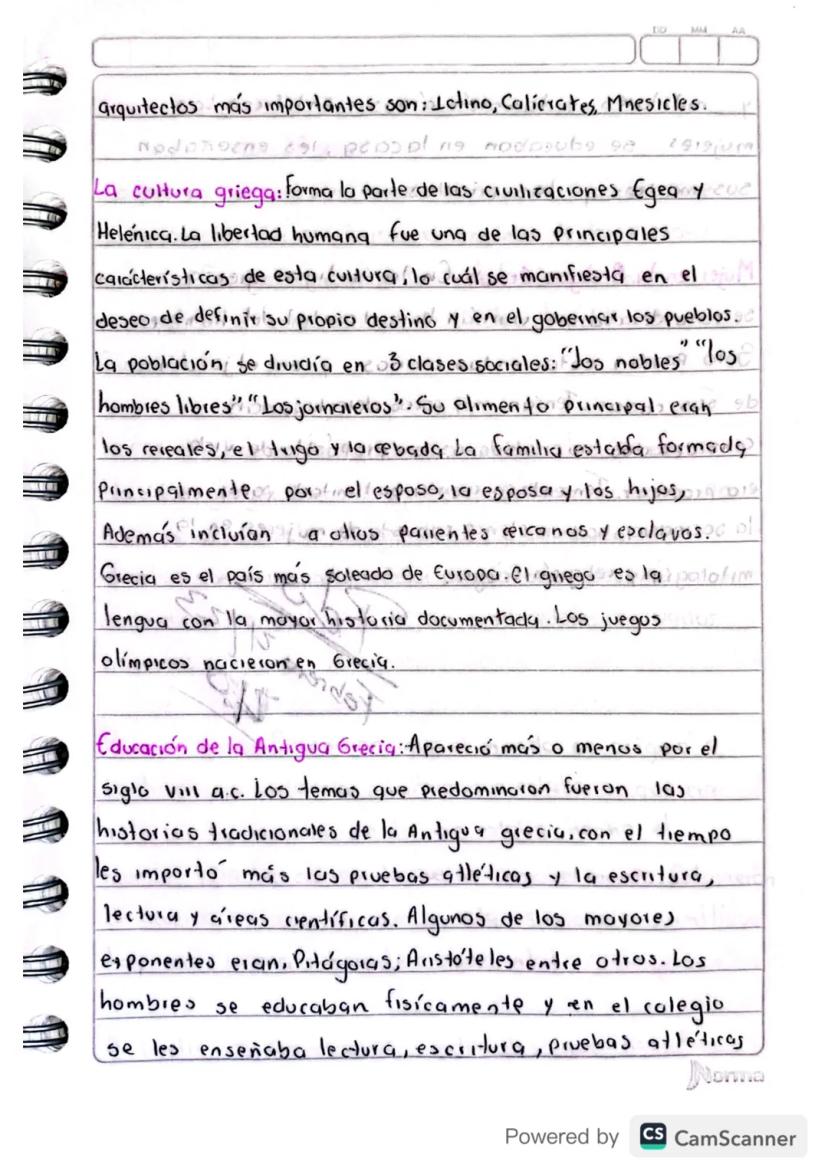 DD MM AA
arquitectos más importantes son: Ictino, Calícrates, Mnesicles.
La cultura griega: Forma la parte de las civilizaciones Egea y
Helénica. La libertad humana fue una de las principales
carácterísticas de esta cultura, lo cuál se manifiesta en el
deseo de definir su propio destino y en el gobernar los pueblos.
La población se dividía en 3 clases sociales: "los nobles" "los
hombres libres" "Los jornaleros". Su alimento principal eran
los cereales, el trigo y la cebada La familia estaba formada
Principalmente por el esposo, la esposa y los hijos,
Además incluían a otros parientes cercanos y esclavos.
Grecia es el país más soleado de Europa. El griego es la
lengua con la mayor historia documentada. Los juegos
olímpicos nacieron en Grecia.
Educación de la Antigua Grecia: Apareció más o menos por el
siglo VIII a.c. Los temas que predominaron fueron las
historias tradicionales de la Antigua grecia, con el tiempo
les importó más las pruebas atléticas y la escritura,
lectura y áreas científicas. Algunos de los mayores
exponentes eran, Pitágoras; Aristóteles entre otros. Los
hombres se educaban fisícamente y en el colegio
se les enseñaba lectura, escritura, pruebas atléticas
Norma
Powered by CS CamScanner